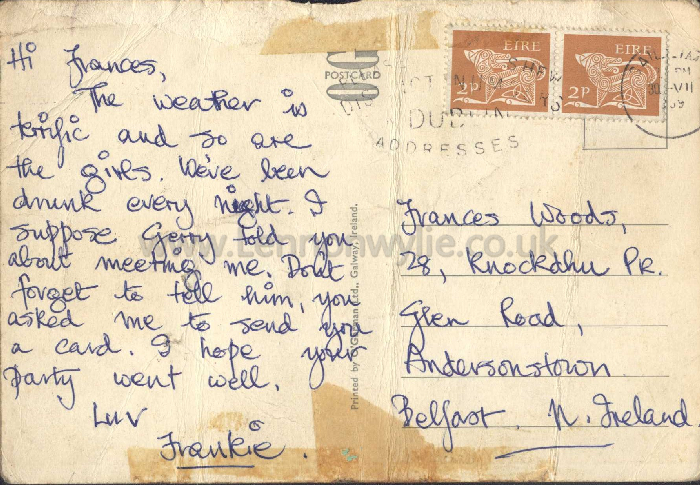 Hi Frances,
The weather is
terrific and so are
the girls. We've been
drunk every night. I
suppose Gerry told you
about meeting me. Dont
forget to tell him, you
asked me to send you
a card. I hope your
party went well.
Luv
Frankie.
OG
POSTCARD
Printed by O'Gorman Ltd., Galway, Ireland.
EIRE
2P
EIRE
2P
DUBLIN
ADDRESSES
VII
Frances Woods,
28, Knockdhu Pk.
Glen Road,
Andersonstown
Belfast. N. Ireland
www.Lennonwylie.co.uk